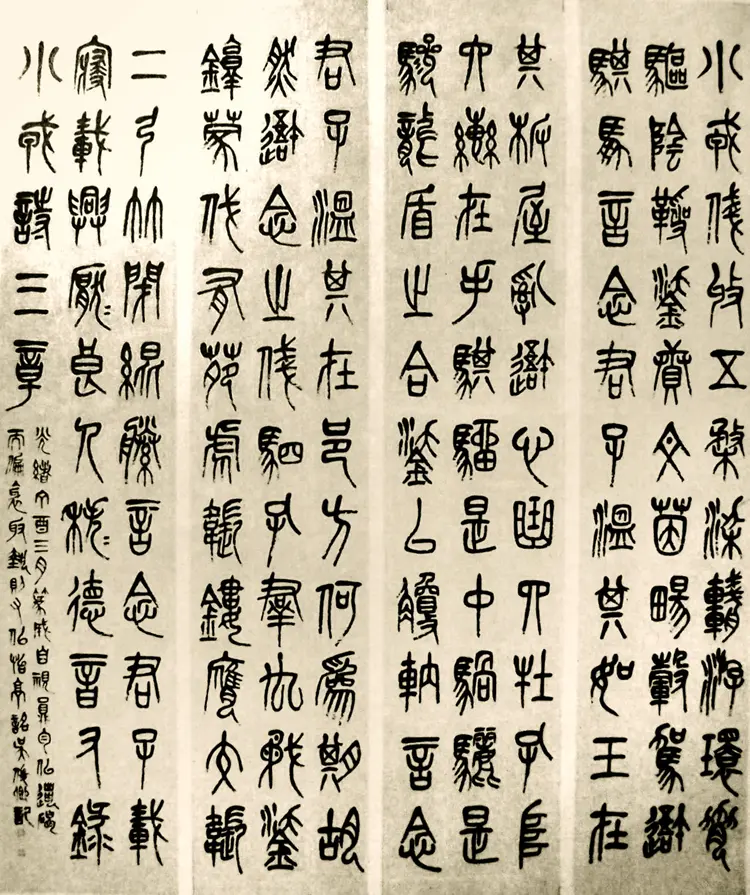 小戎俴收五楘梁輈游環脅
驅陰靷鋈續文茵暢轂駕我
騏馵言念君子溫其如玉在
其板屋亂我心曲四牡孔阜
六轡在手騏駵是中騧驪是
驂龍盾之合鋈以觼軜言念
君子溫其在邑方何為期胡
然我念之俴駟孔群厹矛鋈
錞蒙伐有苑虎韔鏤膺交韔
二弓竹閉緄縢言念君子載
寢載興厭厭良人秩秩德音又錄
小戎詩三章
光緒丁酉三月篆成自視員勻似遺碣
吳俊卿記